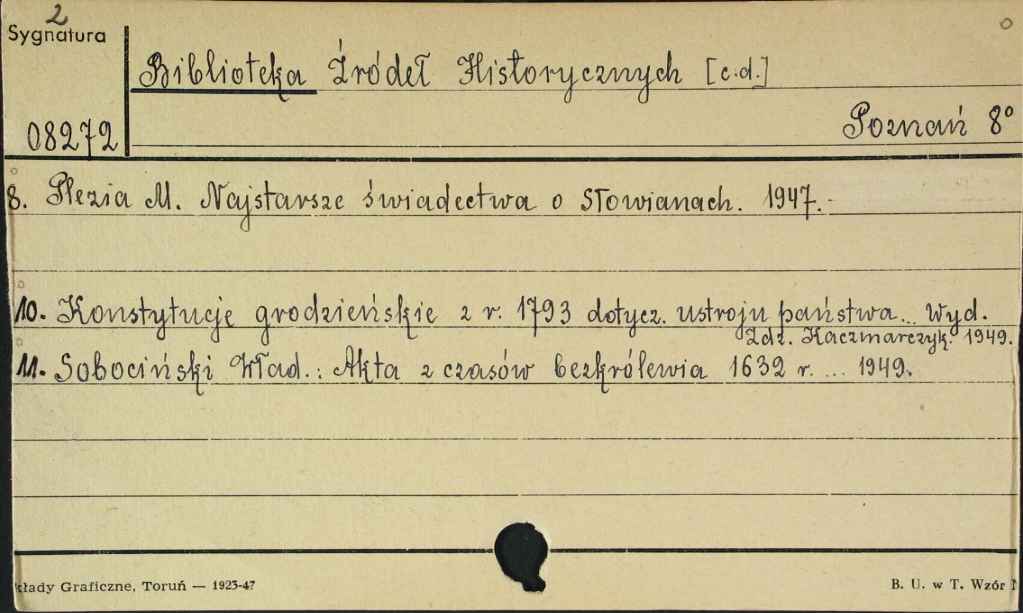 2
Sygnatura
Biblioteka Źródeł Historycznych [c.d.]
08272
Poznań 8°
8. Plezia M. Najstarsze świadectwa o Słowianach. 1947.-
10. Konstytucje grodzieńskie z r. 1793 dotycz. ustroju państwa... Wyd.
Zdz. Kaczmarczyk. 1949.
11. Sobociński Wład.: Akta z czasów bezkrólewia 1632 r. ... 1949.
kłady Graficzne, Toruń — 1923-47
B. U. w T. Wzór